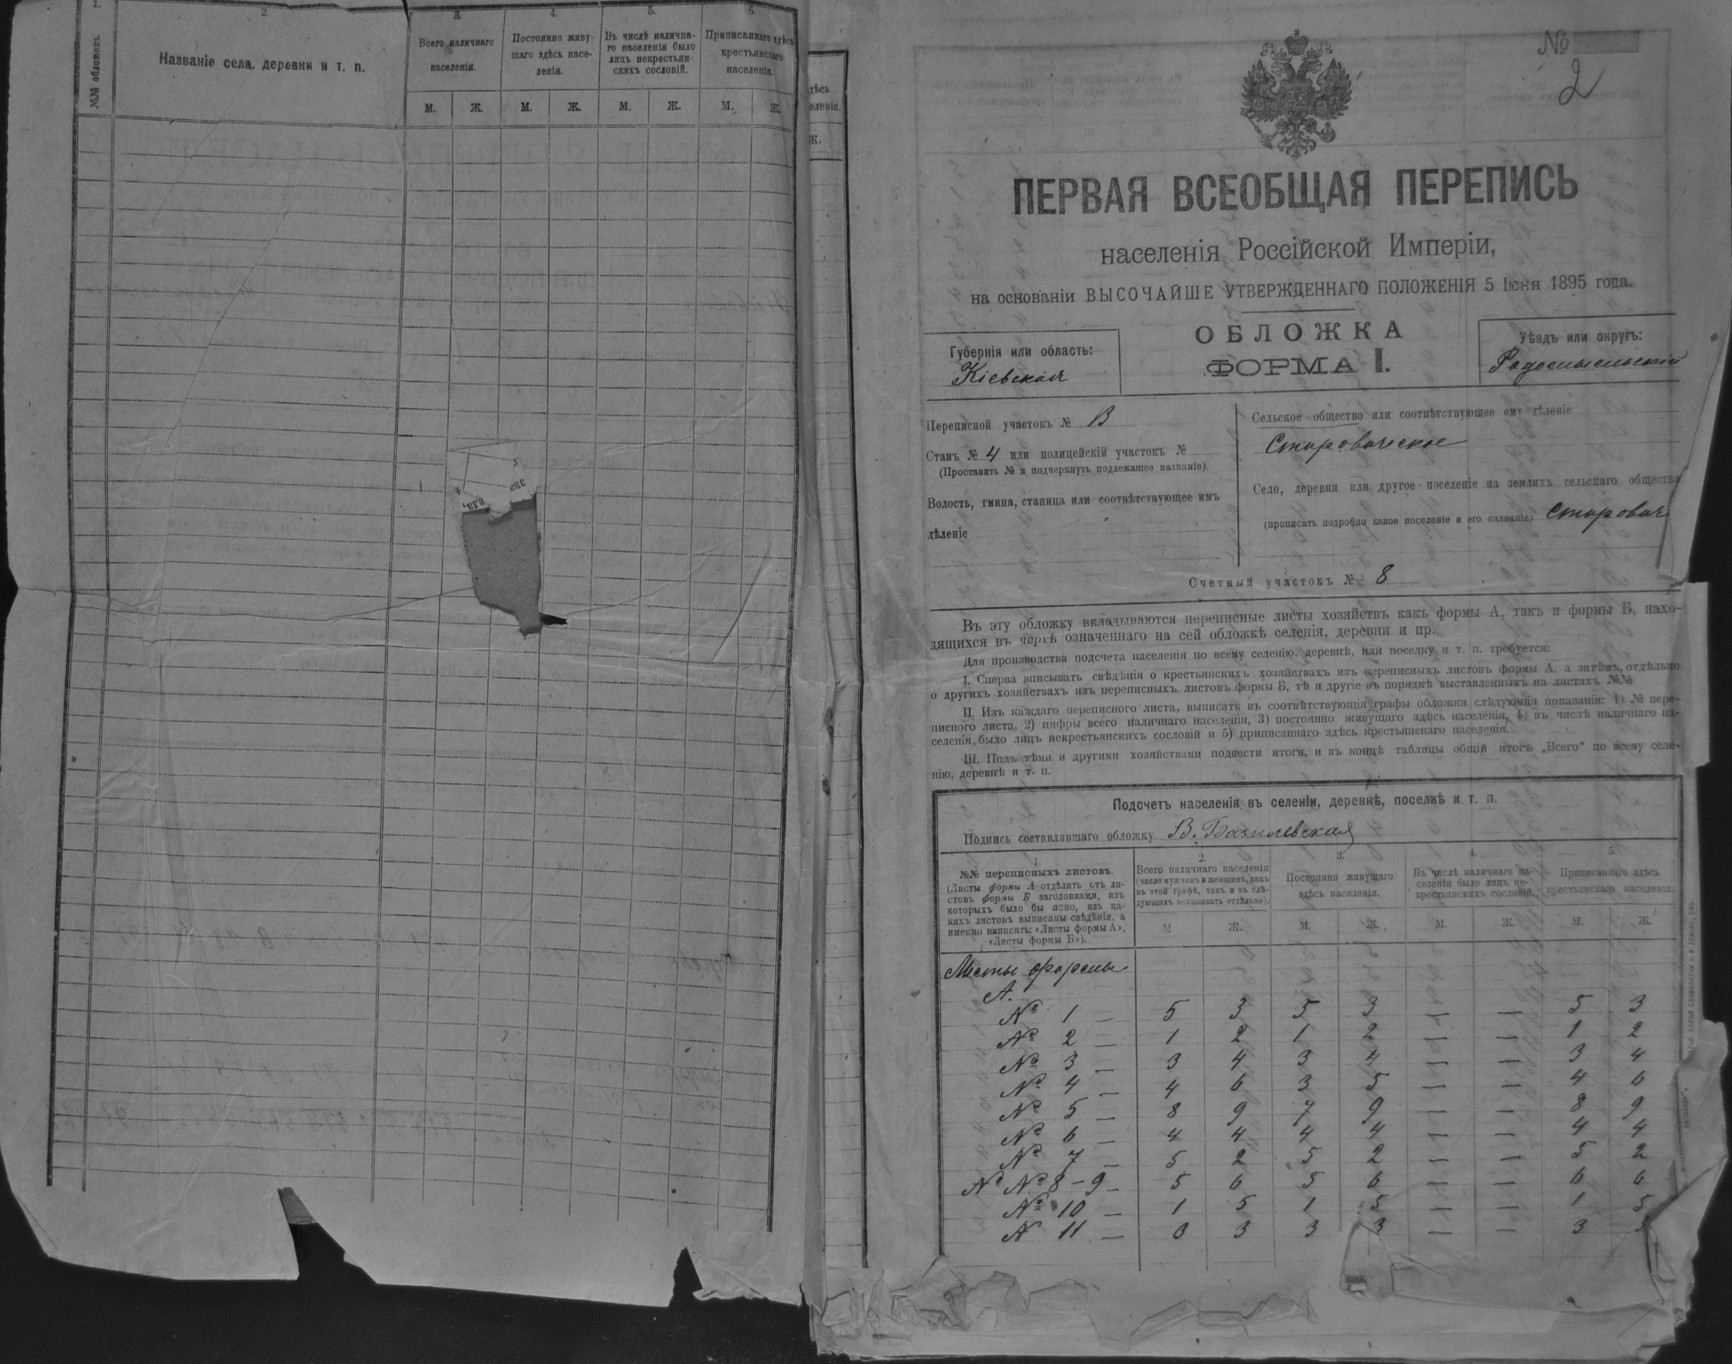 1. 2. 3. 4. 5. 6.
№№ обложекъ.
Названіе села, деревни и т. п.
Всего наличнаго населенія.
Постоянно живу-
щаго здѣсь насе-
ленія.
Въ числѣ налична-
го населенія было
лицъ некрестьян-
скихъ сословій.
Приписаннаго здѣсь
крестьянскаго
населенія
М. Ж. М. Ж. М. Ж. М. Ж.
№
2
ПЕРВАЯ ВСЕОБЩАЯ ПЕРЕПИСЬ
населенія Россійской Имперіи,
на основаніи ВЫСОЧАЙШЕ УТВЕРЖДЕННАГО ПОЛОЖЕНІЯ 5 Іюня 1895 года.
ОБЛОЖКА
ФОРМА I.
Губернія или область:
Кіевская
Уѣздъ или округъ:
Радомысльскій
Переписной участокъ № В
Станъ № 4 или полицейскій участокъ №
(Проставить № и подчеркнуть подлежащее названіе).
Волость, гмина, станица или соотвѣтствующее имъ
дѣленіе
Сельское общество или соотвѣтствующее ему дѣленіе
Старовическое
Село, деревня или другое поселеніе на земляхъ сельскаго общества
(прописать подробно какое поселеніе и его названіе)
Счетный участокъ № 8
Въ эту обложку вкладываются переписные листы хозяйствъ какъ формы А, такъ и формы Б, нахо-
дящихся въ чертѣ означеннаго на сей обложкѣ селенія, деревни и пр.
Для производства подсчета населенія по всему селенію, деревнѣ, или поселку и т. п. требуется:
I. Сперва вписывать свѣдѣнія о крестьянскихъ хозяйствахъ изъ переписныхъ листовъ формы А, а затѣмъ, отдѣльно
о другихъ хозяйствахъ изъ переписныхъ листовъ формы Б, тѣ и другіе въ порядкѣ выставленныхъ на листахъ №№
II. Изъ каждаго переписного листа, выписать въ соотвѣтствующія графы обложки слѣдующія показанія: 1) № пере-
писного листа, 2) цифры всего наличнаго населенія, 3) постоянно живущаго здѣсь населенія, 4) въ числѣ наличнаго на-
селенія, было лицъ некрестьянскихъ сословій и 5) приписаннаго здѣсь крестьянскаго населенія.
III. Подъ тѣми и другими хозяйствами подвести итоги, и въ концѣ таблицы общій итогъ „Всего“ по всему селе-
нію, деревнѣ и т. п.
Подсчетъ населенія въ селеніи, деревнѣ, поселкѣ и т. п.
Подпись составлявшаго обложку В. Базилевская
1. 2. 3. 4. 5.
№№ переписныхъ листовъ.
(Листы формы А отдѣлить отъ ли-
стовъ формы Б заголовками, изъ
которыхъ было бы ясно, изъ ка-
кихъ листовъ выписаны свѣдѣнія, а
именно написать: «Листы формы А»,
«Листы формы Б»).
Всего наличнаго населенія
(число мужчинъ и женщинъ, какъ
въ этой графѣ, такъ и въ слѣ-
дующихъ показывать отдѣльно).
Постоянно живущаго
здѣсь населенія.
Въ числѣ наличнаго на-
селенія было лицъ не-
крестьянскихъ сословій.
Приписаннаго здѣсь
крестьянскаго населенія.
М. Ж. М. Ж. М. Ж. М. Ж.
Листы формы
А.
№ 1 — 5 3 5 3 — — 5 3
№ 2 — 1 2 1 2 — — 1 2
№ 3 — 3 4 3 4 — — 3 4
№ 4 — 4 6 3 5 — — 4 6
№ 5 — 8 9 7 9 — — 8 9
№ 6 — 4 4 4 4 — — 4 4
№ 7 — 5 2 5 2 — — 5 2
№ № 8-9 — 5 6 5 6 — — 6 6
№ 10 — 1 5 1 5 — — 1 5
№ 11 — 3 3 3 — — 3